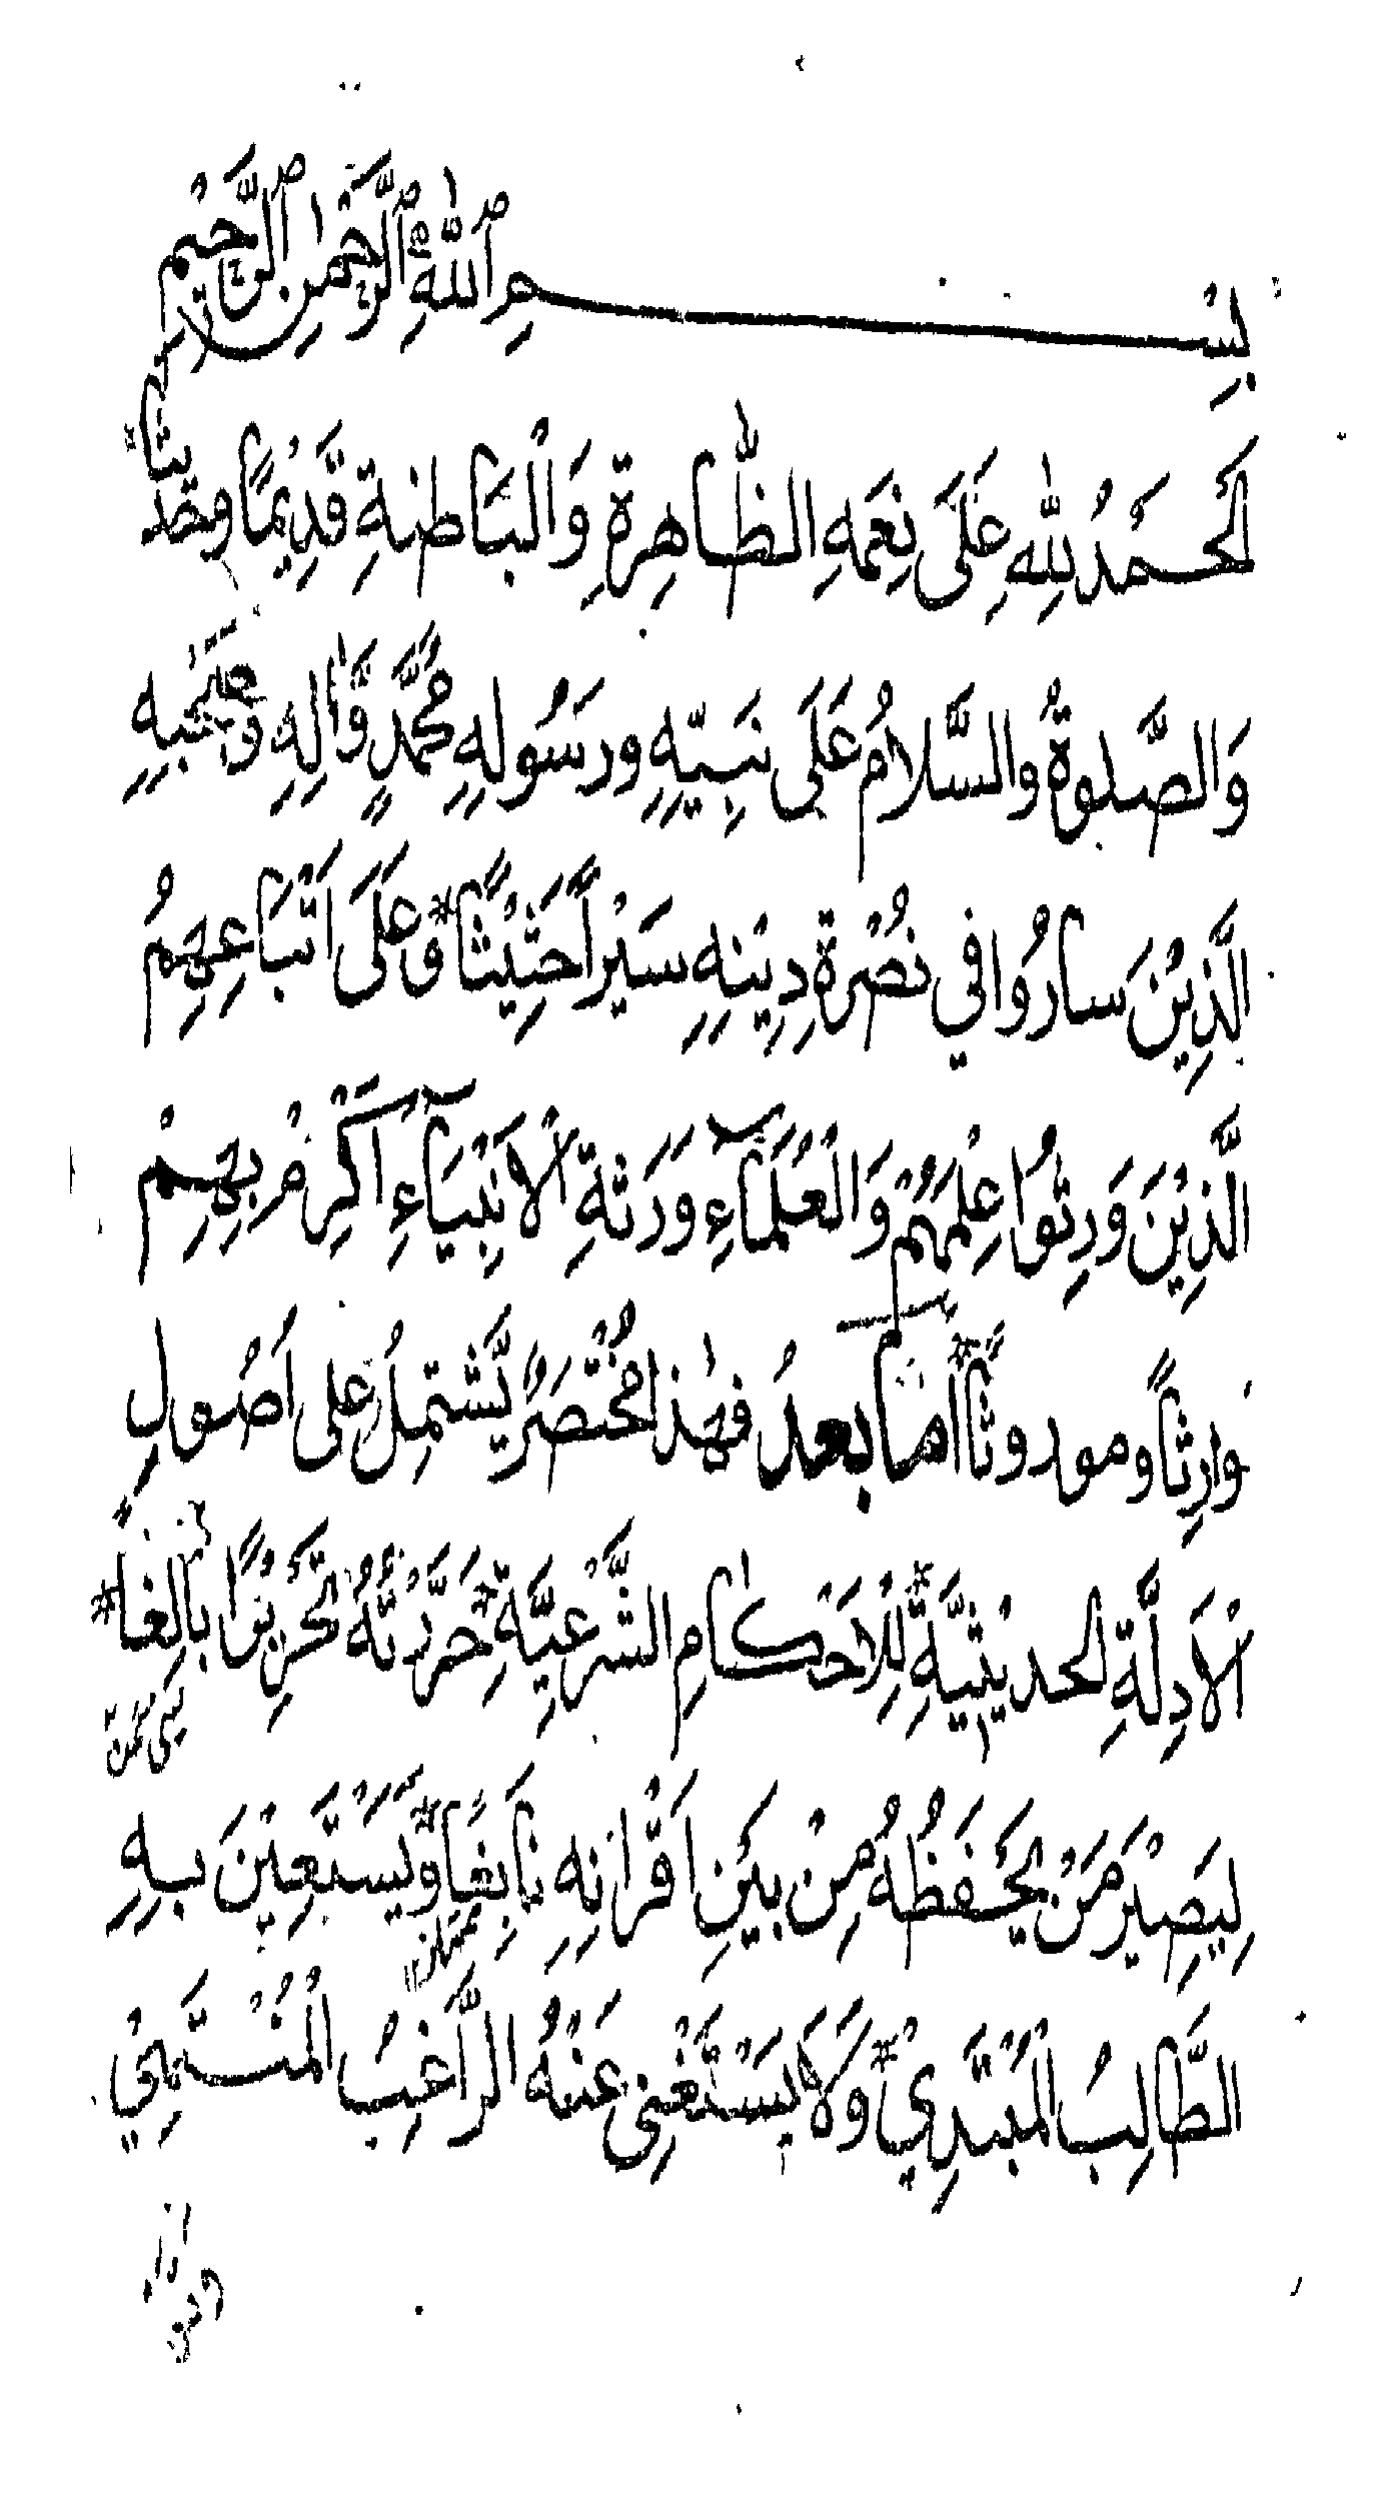 بِسْمِ ٱللّٰهِ ٱلرَّحْمٰنِ ٱلرَّحِيْمِ
اَلْحَمْدُ لِلّٰهِ عَلَىٰ نِعَمِهِ الظَّاهِرَةِ وَالْبَاطِنَةِ قَدِيْمًا وحَدِيثًا *
وَالصَّلٰوةُ والسَّلَامُ عَلَى نَبِيِّهِ ورَسُولِهِ مُحَمَّدٍ وَّاٰلِهِ وصَحْبِهِ
الَّذِيْنَ سَارُوْا في نُصْرَةِ دِيْنِهِ سَيْراً حَثِيْثًا * وعَلَى اَتْبَاعِهِمُ
الَّذِيْنَ وَرِثُوا عِلْمَهُمْ وَالْعُلَمَآءُ وَرَثَةُ الْاَنْبِيَآءِ اَكْرِمْ بِهِمْ
وارِثاً وموروثاً * أما بعدُ فهٰذا مُخْتَصَرٌ يَّشْتَمِلُ على اُصُولِ
الْاَدِلَّةِ الحديثيَّةِ * لِلْاَحْكَامِ الشَّرْعِيَّةِ * حَرَّرْتُهُ تَحْرِيْرًا بَالِغاً *
لِيَصِيْرَ مَنْ يَحْفَظُهُ مِنْ بَيْنِ اَقْرَانِهِ نَابِغًا * وَيَسْتَعِيْنَ بِهِ
الطَّالِبُ الْمُبْتَدِيْ * وَلَا يَسْتَغْنِى عَنْهُ الرَّاغِبُ الْمُنْتَهِيْ